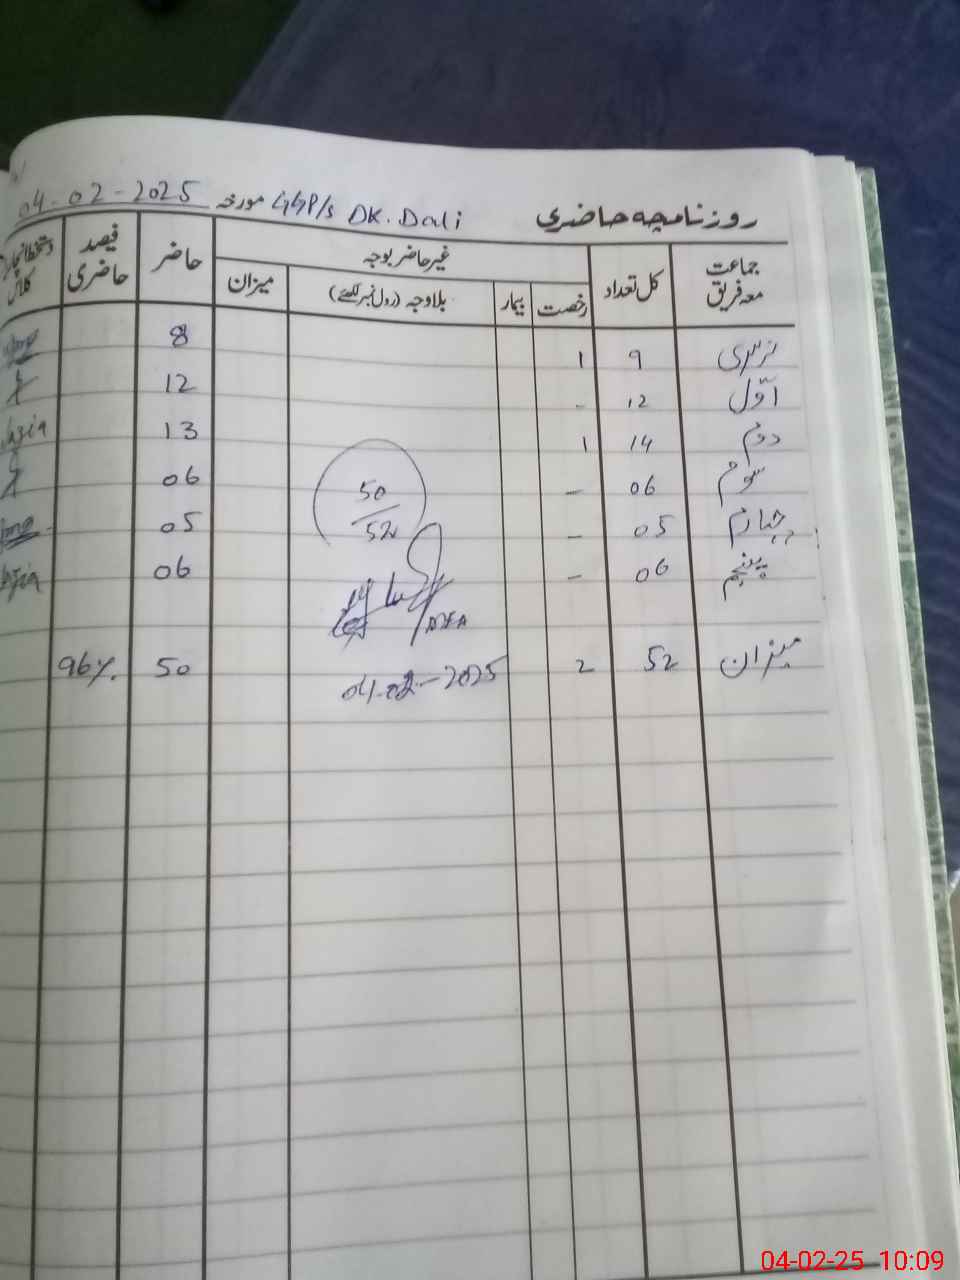 روزنامچہ حاضری GGP/s DK. Dali مورخہ 04-02-2025
جماعت معہ فریق کل تعداد غیر حاضر بوجہ حاضر فیصد حاضری دستخط انچارج کلاس
رخصت بیمار بلاوجہ (رول نمبر لکھئے) میزان
نرسری 9 1 8
اوّل 12 - 12
دوم 14 1 13 Nazia
سوم 06 - 06
چہارم 05 - 05
پنجم 06 - 06 Nazia
50
52
میزان 52 2 50 96%
04-02-2025
04-02-25 10:09